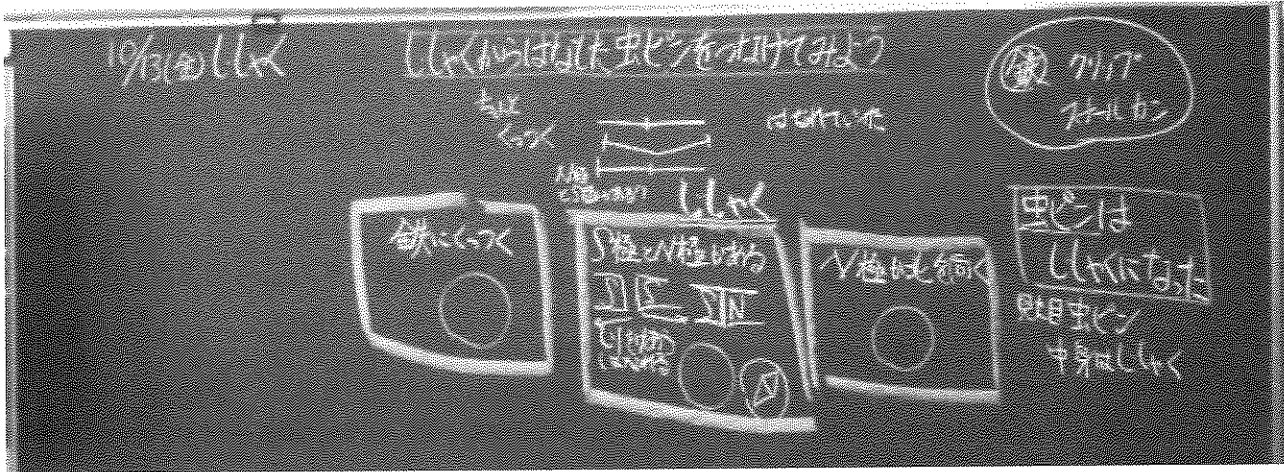 10/13(金)じしゃく
じしゃくからはなした虫ピンを近づけてみよう
鉄 クリップ
スチールカン
もっと
くっつく
はなれていた
N極
じしゃく
鉄にくっつく
S極とN極がある
S S S N
しりぞけあう
N極が北を向く
虫ピンは
じしゃくになった
見た目虫ピン
中身はじしゃく